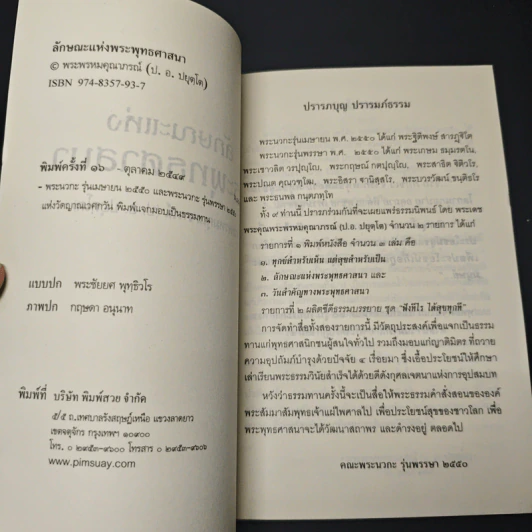 ลักษณะแห่งพระพุทธศาสนา
© พระพรหมคุณาภรณ์ (ป. อ. ปยุตฺโต)
ISBN 974-8357-93-7
พิมพ์ครั้งที่ ๑๖ - ตุลาคม ๒๕๔๙
- พระนวกะ รุ่นเมษายน ๒๕๕๐ และพระนวกะ รุ่นพรรษา ๒๕๕๐
แห่งวัดญาณเวศกวัน พิมพ์แจกมอบเป็นธรรมทาน
แบบปก พระชัยยศ พุทฺธิวโร
ภาพปก กฤษดา อนุนาท
พิมพ์ที่ บริษัท พิมพ์สวย จำกัด
๕/๕ ถ.เทศบาลรังสฤษฏ์เหนือ แขวงลาดยาว
เขตจตุจักร กรุงเทพฯ ๑๐๙๐๐
โทร. ๐ ๒๙๕๓-๙๖๐๐ โทรสาร ๐ ๒๙๕๓-๙๖๐๖
www.pimsuay.com
ปรารภบุญ ปรารมภ์ธรรม
พระนวกะรุ่นเมษายน พ.ศ. ๒๕๕๐ ได้แก่ พระฐิติพงษ์ สารภูชิโต
พระนวกะรุ่นพรรษา พ.ศ. ๒๕๕๐ ได้แก่ พระเกษม ธมฺมรตโน,
พระเชาวลิต วรปุญฺโญ, พระกฤษณ์ กตปุญฺโญ, พระสาธิต จิติวโร,
พระปณต คุณวฑฺโฒ, พระอิสรา ฐานิสฺสโร, พระบวรวัฒน์ ชนุติธโร
และ พระธนพล กนฺตนาทโท
ทั้ง ๙ ท่านนี้ ปรารภร่วมกันที่จะเผยแพร่ธรรมนิพนธ์ โดย พระเดช
พระคุณพระพรหมคุณาภรณ์ (ป.อ. ปยุตฺโต) จำนวน ๒ รายการ ได้แก่
รายการที่ ๑ พิมพ์หนังสือ จำนวน ๓ เล่ม คือ
๑. ทุกข์สำหรับเห็น แต่สุขสำหรับเป็น
๒. ลักษณะแห่งพระพุทธศาสนา และ
๓. วันสำคัญทางพระพุทธศาสนา
รายการที่ ๒ ผลิตซีดีธรรมบรรยาย ชุด "ฟังทีไร ได้สุขทุกที"
การจัดทำสื่อทั้งสองรายการนี้ มีวัตถุประสงค์เพื่อแจกเป็นธรรม
ทานแก่พุทธศาสนิกชนผู้สนใจทั่วไป รวมถึงมอบแก่ญาติมิตร ที่ถวาย
ความอุปถัมภ์บำรุงด้วยปัจจัย ๔ เรื่อยมา ซึ่งเอื้อประโยชน์ให้ศึกษา
เล่าเรียนพระธรรมวินัยสำเร็จได้ด้วยดีดังกุศลเจตนาแห่งการอุปสมบท
หวังว่าธรรมทานครั้งนี้จะเป็นสื่อให้พระธรรมคำสั่งสอนขององค์
พระสัมมาสัมพุทธเจ้าแผ่ไพศาลไป เพื่อประโยชน์สุขของชาวโลก เพื่อ
พระพุทธศาสนาจะได้วัฒนาสถาพร และดำรงอยู่ ตลอดไป
คณะพระนวกะ รุ่นพรรษา ๒๕๕๐